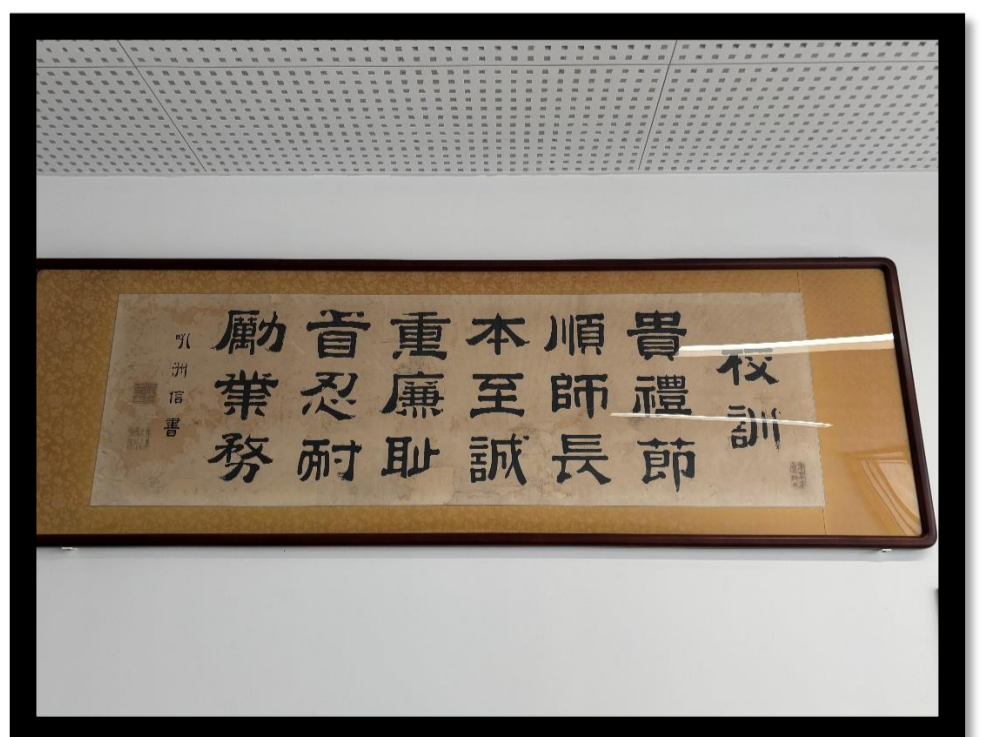 校訓
貴禮節
順師長
本至誠
重廉耻
旨忍耐
勵業務
洲信書